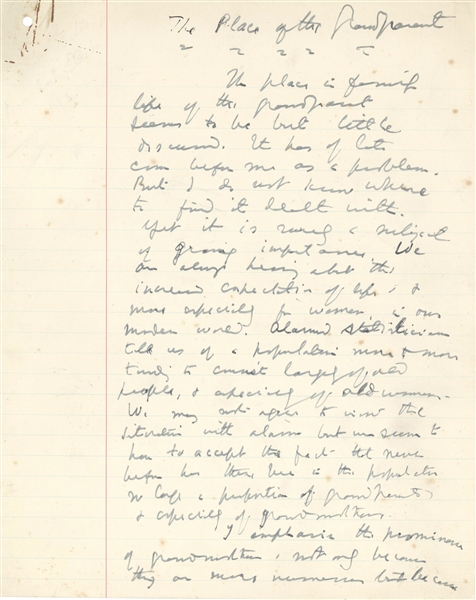 The Place of the Grandparent
The place in family
life of the grandparent
seems to be but little
discussed. It has of late
come before me as a problem.
But I do not know where
to find it dealt with.
Yet it is surely a subject
of growing importance. We
are always hearing about the
increased expectation of life, &
more especially for women, in our
modern world. Alarmed statisticians
tell us of a population more & more
tending to consist largely of old
people, & especially of old women.
We may not agree to view the
situation with alarm but we seem to
have to accept the fact that never
before has there been in the population
so large a proportion of grandparents
& especially of grandmothers.
I emphasise the prominence
of grandmothers, not only because
they are more numerous but because